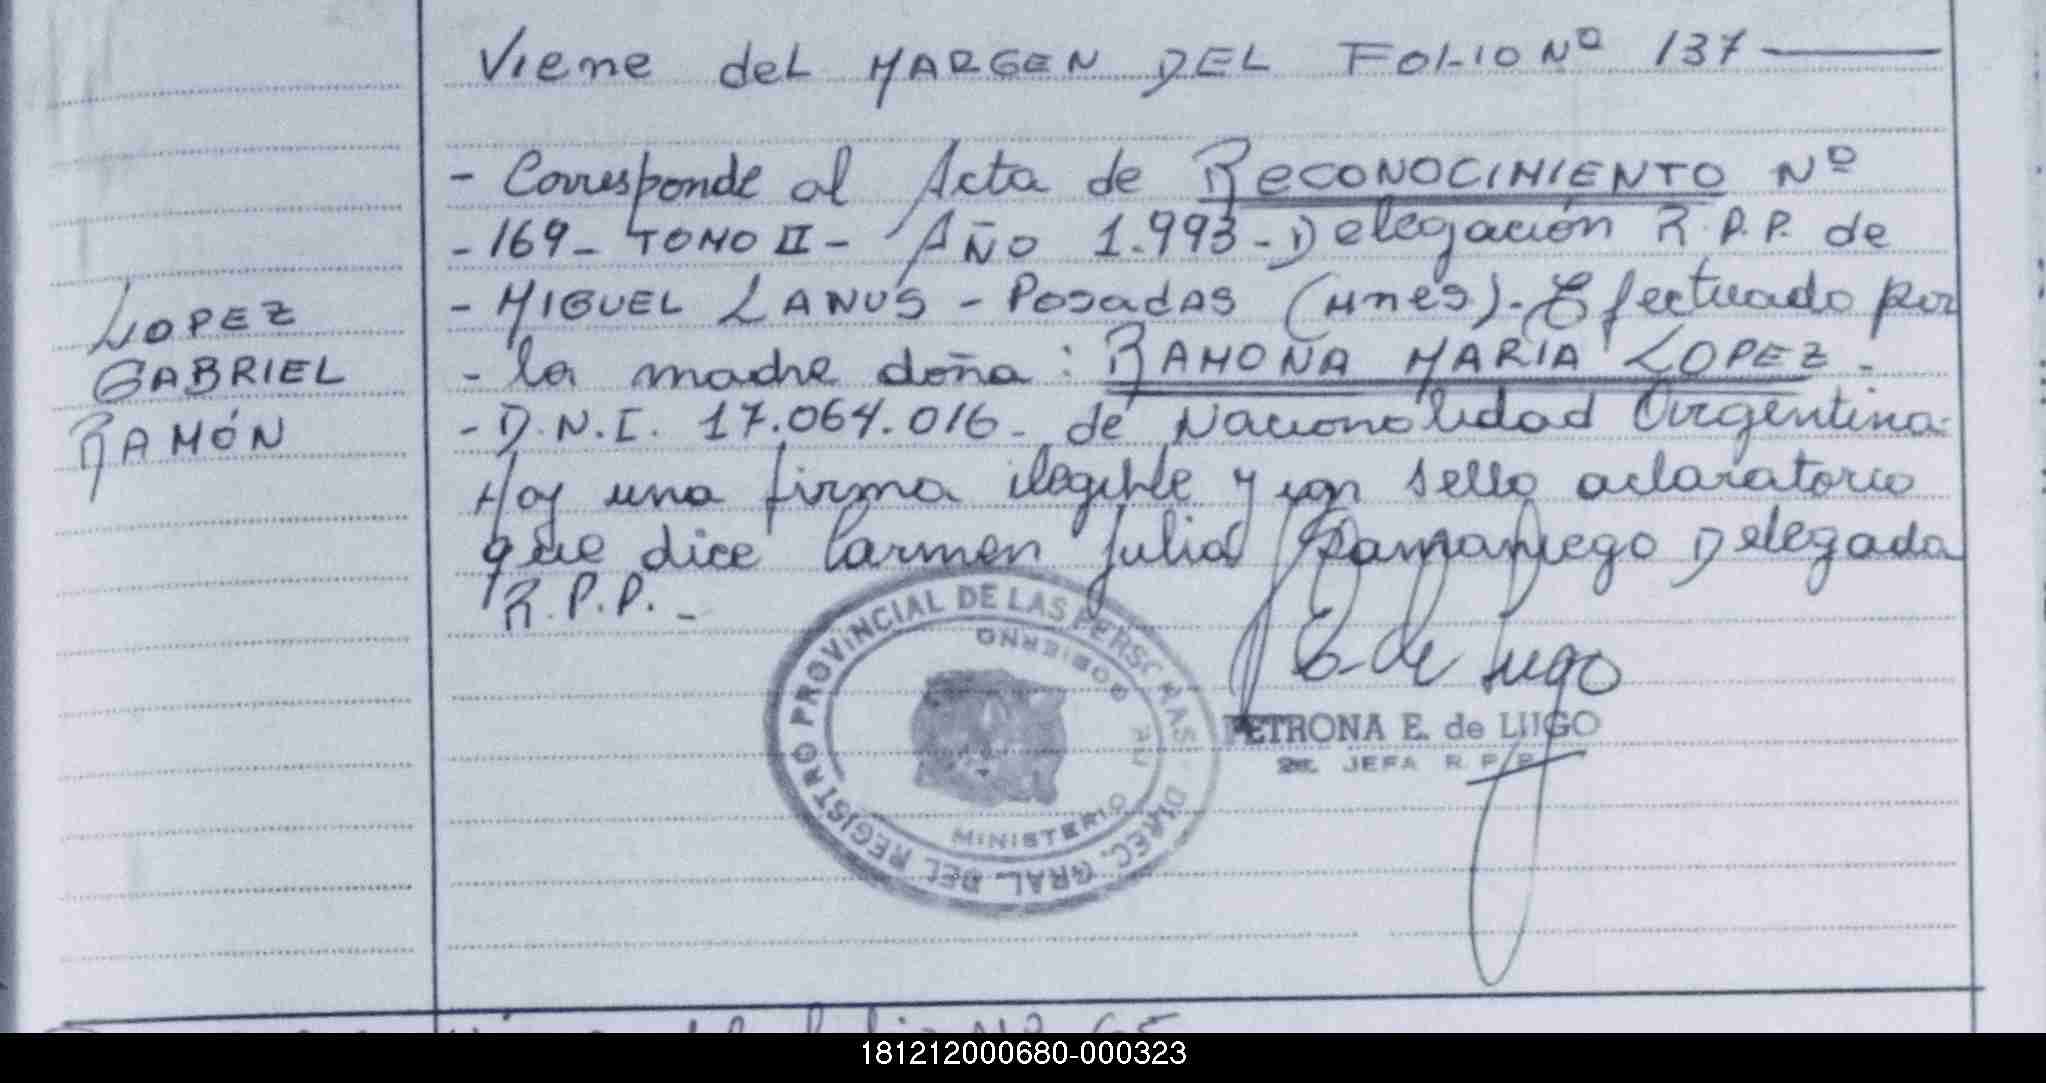 Viene del MARGEN DEL FOLIO Nº 137
- Corresponde al Acta de RECONOCIMIENTO Nº
- 169 - TOMO II - AÑO 1.993 - Delegación R.P.P. de
- MIGUEL LANUS - POSADAS (Mnes). Efectuado por
LOPEZ
GABRIEL
RAMÓN
- la madre doña: RAMONA MARIA LOPEZ -
- D.N.I. 17.064.016 - de Nacionalidad Argentina.
Hay una firma ilegible y un sello aclaratorio
que dice Carmen Julia Samaniego Delegada
R.P.P. -
DIREC. GRAL. DEL REGISTRO PROVINCIAL DE LAS PERSONAS
MINISTERIO DE GOBIERNO
E. de Lugo
PETRONA E. de LUGO
JEFA R.P.P.
181212000680-000323